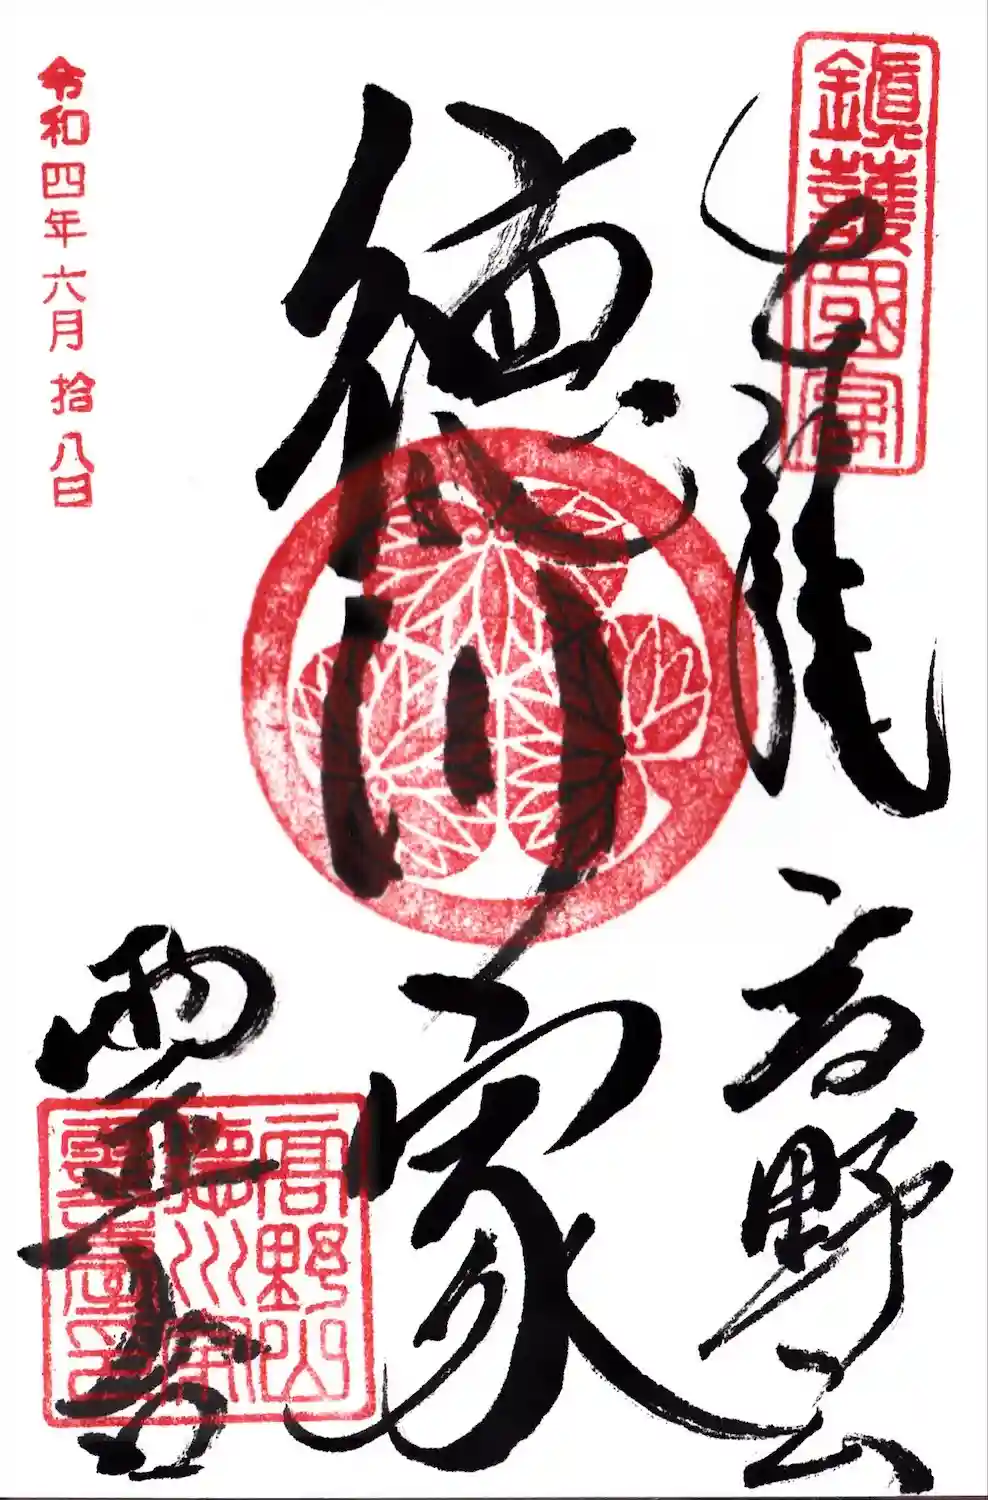 鎮護國家
奉拝
高野山
徳川家
霊台
高野山
徳川家
靈臺印
令和四年六月拾八日